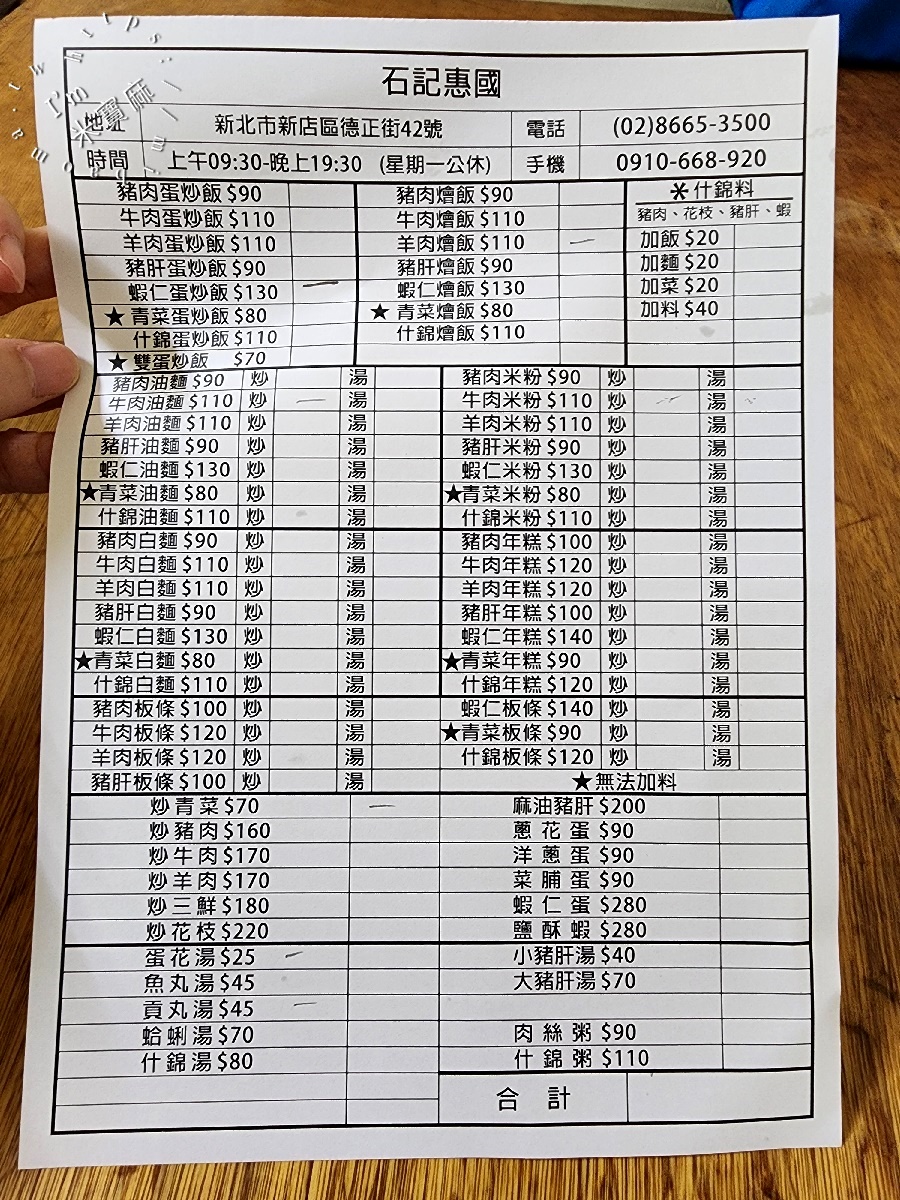 石記惠國
地址 新北市新店區德正街42號 電話 (02)8665-3500
時間 上午09:30-晚上19:30 (星期一公休) 手機 0910-668-920
豬肉蛋炒飯 $90 豬肉燴飯 $90 *什錦料
牛肉蛋炒飯 $110 牛肉燴飯 $110 豬肉、花枝、豬肝、蝦
羊肉蛋炒飯 $110 羊肉燴飯 $110 加飯 $20
豬肝蛋炒飯 $90 豬肝燴飯 $90 加麵 $20
蝦仁蛋炒飯 $130 蝦仁燴飯 $130 加菜 $20
★青菜蛋炒飯 $80 ★青菜燴飯 $80 加料 $40
什錦蛋炒飯 $110 什錦燴飯 $110
★雙蛋炒飯 $70
豬肉油麵 $90 炒 湯 豬肉米粉 $90 炒 湯
牛肉油麵 $110 炒 湯 牛肉米粉 $110 炒 湯
羊肉油麵 $110 炒 湯 羊肉米粉 $110 炒 湯
豬肝油麵 $90 炒 湯 豬肝米粉 $90 炒 湯
蝦仁油麵 $130 炒 湯 蝦仁米粉 $130 炒 湯
★青菜油麵 $80 炒 湯 ★青菜米粉 $80 炒 湯
什錦油麵 $110 炒 湯 什錦米粉 $110 炒 湯
豬肉白麵 $90 炒 湯 豬肉年糕 $100 炒 湯
牛肉白麵 $110 炒 湯 牛肉年糕 $120 炒 湯
羊肉白麵 $110 炒 湯 羊肉年糕 $120 炒 湯
豬肝白麵 $90 炒 湯 豬肝年糕 $100 炒 湯
蝦仁白麵 $130 炒 湯 蝦仁年糕 $140 炒 湯
★青菜白麵 $80 炒 湯 ★青菜年糕 $90 炒 湯
什錦白麵 $110 炒 湯 什錦年糕 $120 炒 湯
豬肉板條 $100 炒 湯 蝦仁板條 $140 炒 湯
牛肉板條 $120 炒 湯 ★青菜板條 $90 炒 湯
羊肉板條 $120 炒 湯 什錦板條 $120 炒 湯
豬肝板條 $100 炒 湯 ★無法加料
炒青菜 $70 麻油豬肝 $200
炒豬肉 $160 蔥花蛋 $90
炒牛肉 $170 洋蔥蛋 $90
炒羊肉 $170 菜脯蛋 $90
炒三鮮 $180 蝦仁蛋 $280
炒花枝 $220 鹽酥蝦 $280
蛋花湯 $25 小豬肝湯 $40
魚丸湯 $45 大豬肝湯 $70
貢丸湯 $45
蛤蜊湯 $70 肉絲粥 $90
什錦湯 $80 什錦粥 $110
合計
I'm
米寶麻